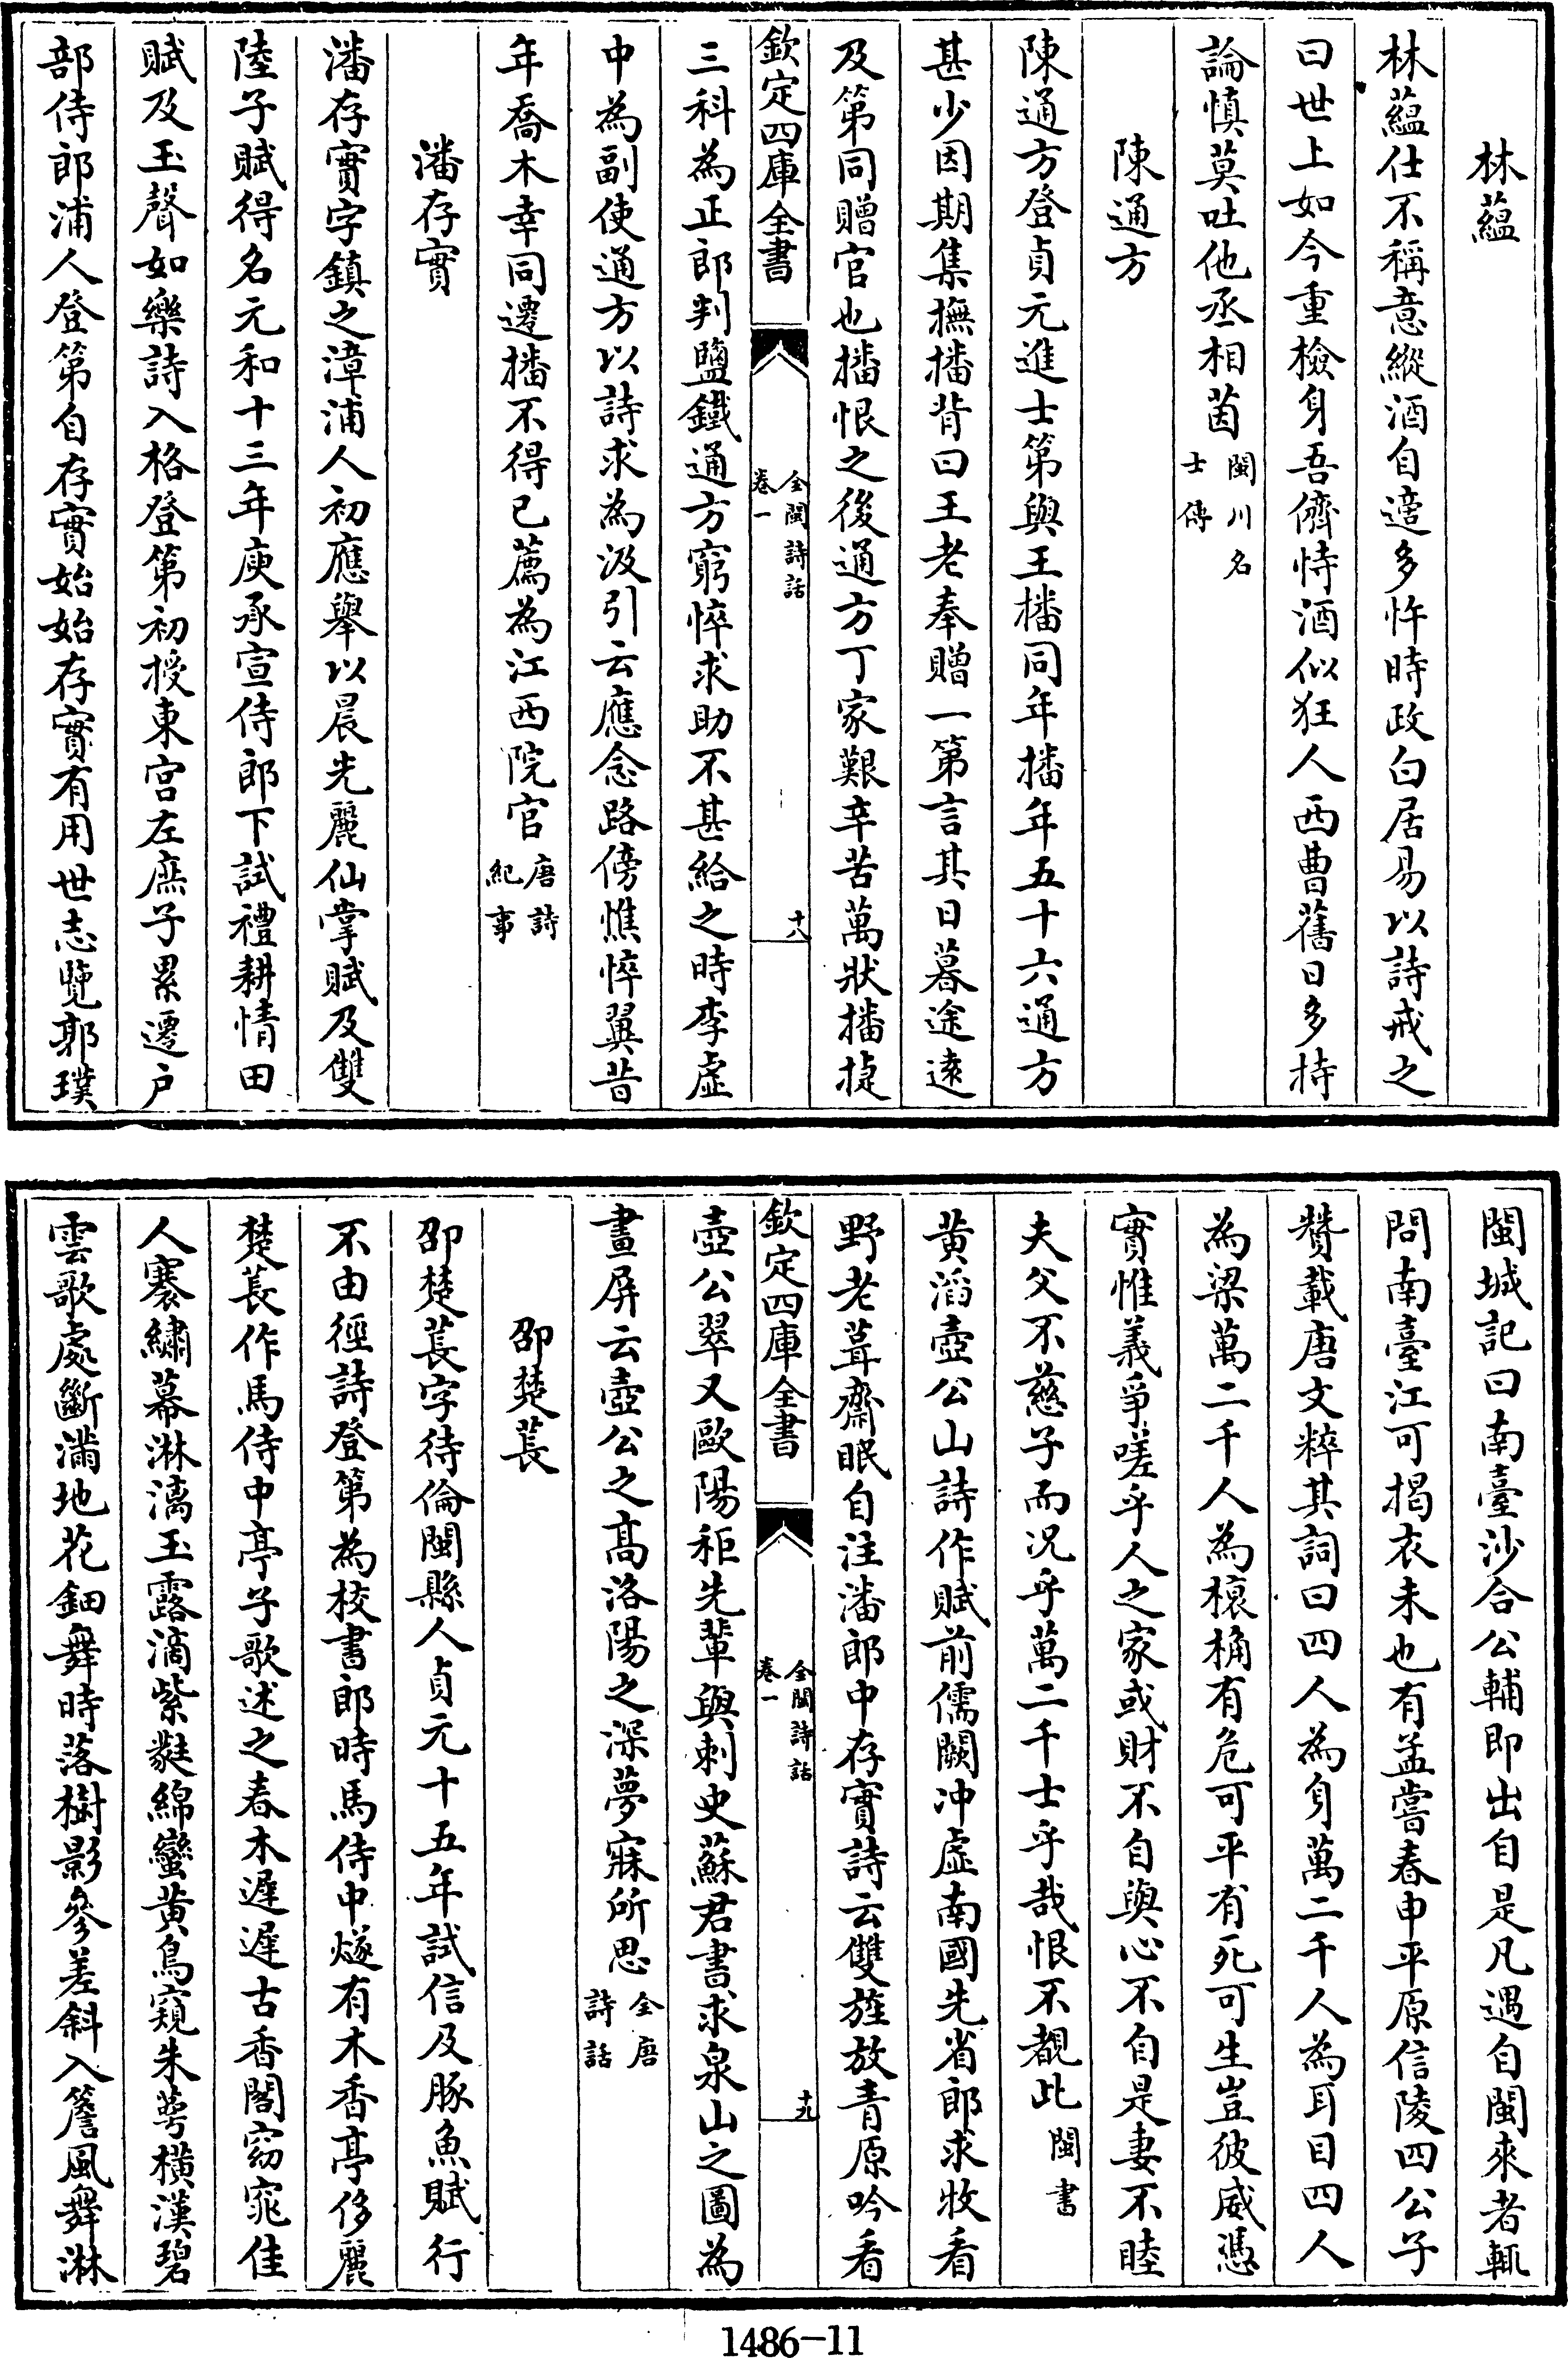 林藴
林藴仕不稱意縱酒自適多忤時政白居易以詩戒之
曰世上如今重檢身吾儕恃酒似狂人西曹舊日多持
論慎莫吐他丞相茵閩川名士傳
陳通方
陳通方登貞元進士第與王播同年播年五十六通方
甚少因期集撫播背曰王老奉贈一第言其日暮途遠
及第同贈官也播恨之後通方丁家艱辛苦萬狀播捷
欽定四庫全書
全閩詩話
卷一
十八
三科為正郎判鹽鐵通方窮悴求助不甚給之時李虛
中為副使通方以詩求為汲引云應念路傍憔悴翼昔
年喬木幸同遷播不得已薦為江西院官唐詩紀事
潘存實
潘存實字鎮之漳浦人初應舉以晨光麗仙掌賦及雙
陸子賦得名元和十三年庾承宣侍郎下試禮耕情田
賦及玉聲如樂詩入格登第初授東宮左庶子累遷户
部侍郎浦人登第自存實始始存實有用世志覽郭璞
閩城記曰南臺沙合公輔即出自是凡遇自閩來者輒
問南臺江可揭衣未也有孟嘗春申平原信陵四公子
贊載唐文粹其詞曰四人為身萬二千人為耳目四人
為梁萬二千人為榱桷有危可平有死可生豈彼威憑
實惟義爭嗟乎人之家或財不自與心不自是妻不睦
夫父不慈子而况乎萬二千士乎哉恨不覩此閩書
黄滔壺公山詩作賦前儒闕冲虛南國先省郎求牧看
野老葺齋眠自注潘郎中存實詩云雙旌放青原吟看
欽定四庫全書
全閩詩話
卷一
十九
壺公翠又歐陽秬先輩與刺史蘇君書求泉山之圖為
畫屏云壺公之髙洛陽之深夢寐所思全唐詩話
邵楚萇
邵楚萇字待倫閩縣人貞元十五年試信及豚魚賦行
不由徑詩登第為校書郎時馬侍中燧有木香亭侈麗
楚萇作馬侍中亭子歌述之春木遲遲古香閣窈窕佳
人褰繡幕淋漓玉露滴紫蕤綿蠻黄鳥窺朱萼橫漢碧
雲歌處斷滿地花鈿舞時落樹影參差斜入簷風舞淋
1486-11